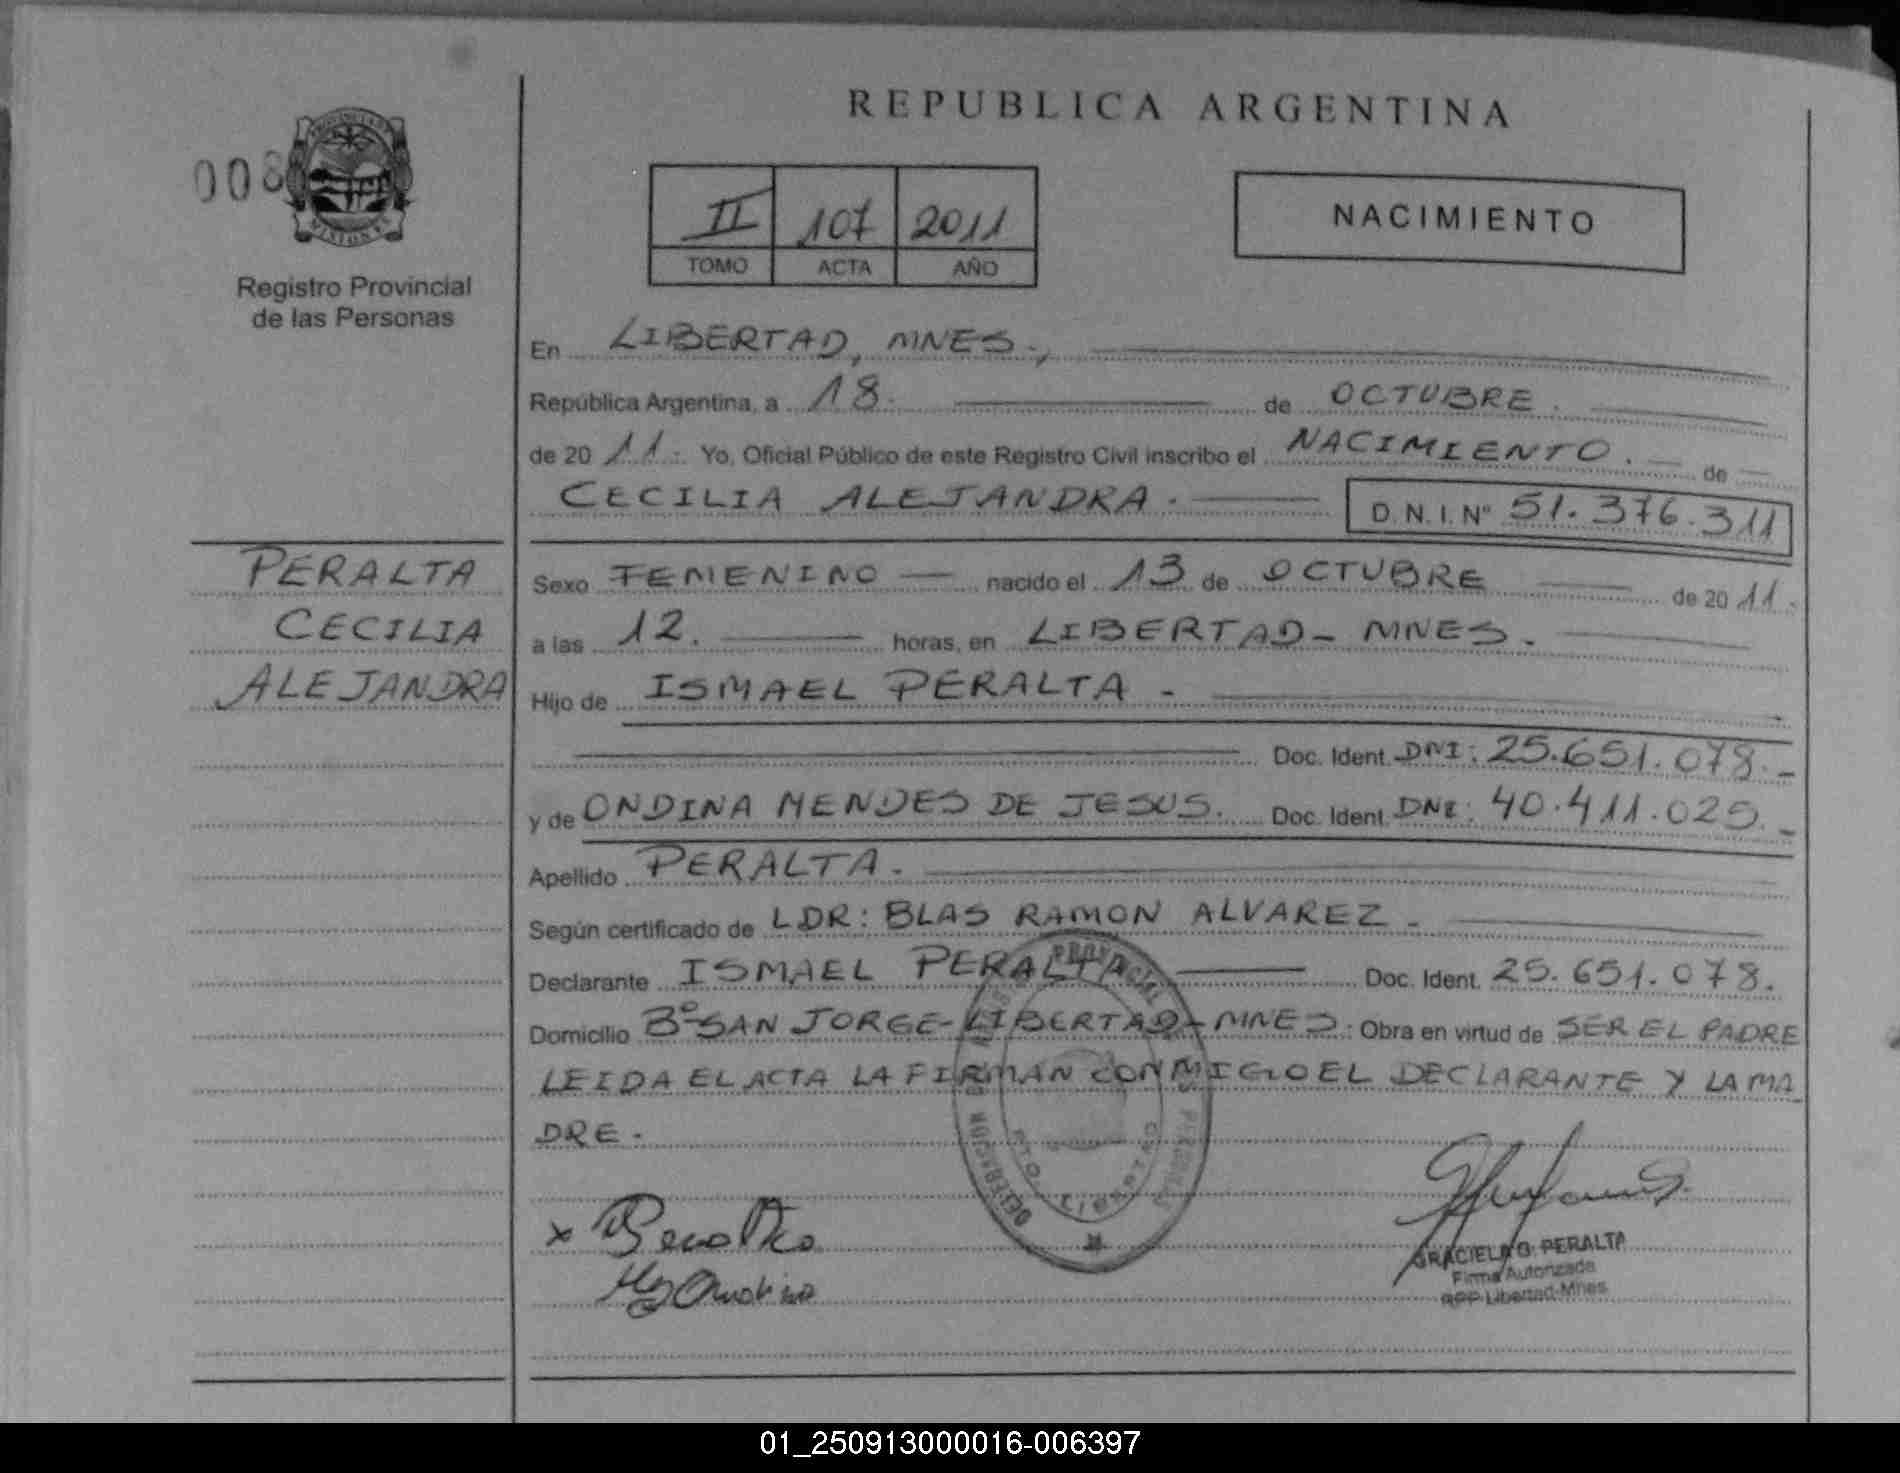 REPUBLICA ARGENTINA
008
Registro Provincial
de las Personas
II 107 2011
TOMO ACTA AÑO
NACIMIENTO
En LIBERTAD, MNES.,
República Argentina, a 18. de OCTUBRE.
de 20 11. Yo, Oficial Público de este Registro Civil inscribo el NACIMIENTO. de
CECILIA ALEJANDRA. D.N.I. Nº 51.376.311
PERALTA
CECILIA
ALEJANDRA
Sexo FEMENINO nacido el 13 de OCTUBRE de 20 11.
a las 12. horas, en LIBERTAD- MNES.
Hijo de ISMAEL PERALTA -
Doc. Ident. DNI: 25.651.078.-
y de ONDINA MENDES DE JESUS. Doc. Ident. DNI: 40.411.025.-
Apellido PERALTA.
Según certificado de LDR: BLAS RAMON ALVAREZ.
Declarante ISMAEL PERALTA Doc. Ident. 25.651.078.
Domicilio Bº SAN JORGE-LIBERTAD-MNES. Obra en virtud de SER EL PADRE
LEIDA EL ACTA LA FIRMAN CONMIGO EL DECLARANTE Y LA MA
DRE.
x Peralta
GRACIELA G. PERALTA
Firma Autorizada
RPP Libertad-Mnes
01_250913000016-006397